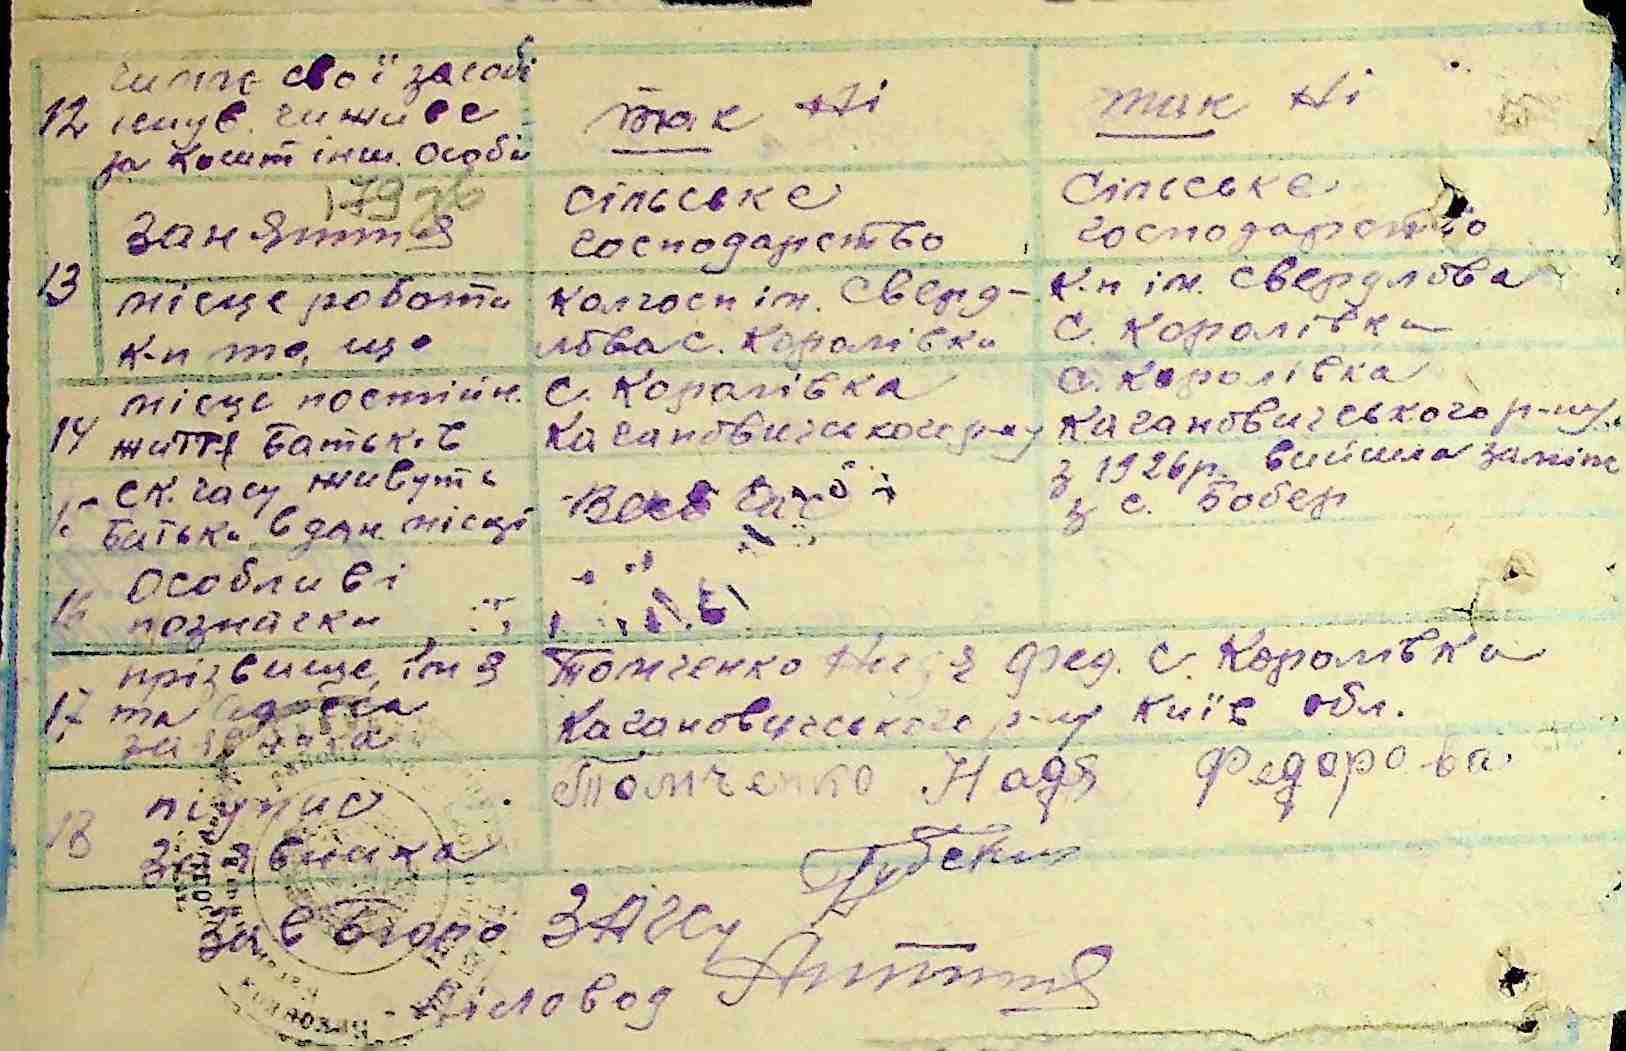 12 чи має свої засоби
існув. чи живе
за кошт інш. особи
так ні
так ні
179 зв
13 заняття
сільське
господарство
сільське
господарство
місце роботи
к-п то, що
колгосп ім. Сверд-
лова с. Королівка
к-п ім. Свердлова
с. Королівка
14 місце постійн.
життя батьків
с. Королівка
Кагановичського р-ну
с. Королівка
Кагановичського р-ну
15 ск. часу живуть
батьки в дан. місці
Весь час
з 1926 р. вийшла заміж
з с. Бобер
16 особливі
позначки
17 прізвище, ім'я
та адреса
заявника
Томченко Надя Фед. с. Королівка
Кагановичського р-ну Київ обл.
18 підпис
заявника
Томченко Надя Федорова
Зав бюро ЗАГСу
Діловод